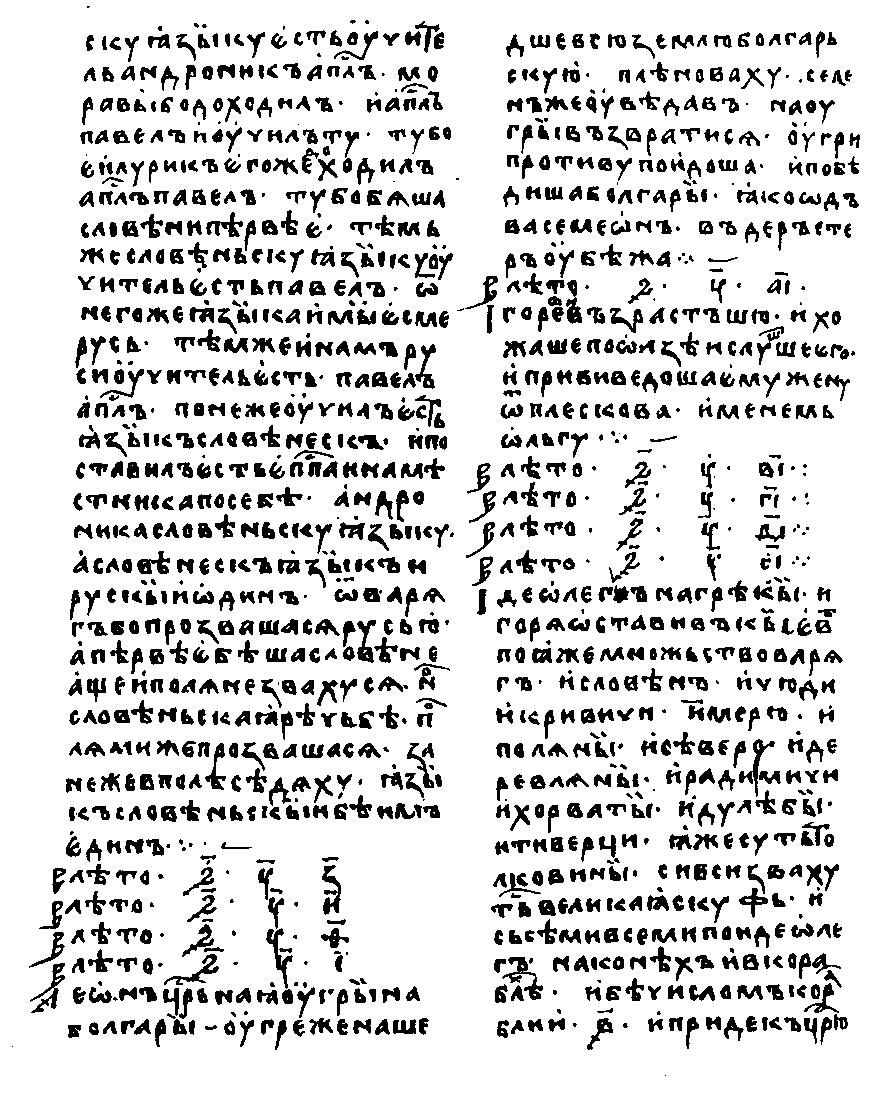 скуꙗзꙑкуєстьѹчите
льандроникъап҃лъ· мо
равꙑбодоходилъ· иап҃лъ
павелъиѹчилъту· тубо
єилурикъєгожеходилъ
ап҃лъпавелъ· тубобѧша
словѣнипѣрвѣє· тѣмь
жесловѣньскуꙗзꙑкуѹ
чительєстьпавелъ· ѿ
негожеꙗзꙑкаимꙑєсме
русь· тѣмжеинамъру
сиѹчительєсть· павелъ
ап҃лъ· понежеѹчилъєсть
ꙗзꙑкъсловѣнескъ· ипо
ставилъєстьєпп҃аинамѣ
стникапосебѣ· андро
никасловѣньскуꙗзꙑку·
асловѣнескъꙗзꙑкъи
рускꙑиѡдинъ· ѿварѧ
гъбопрозвашасѧрусью·
апѣрвѣєбѣшасловѣне
ащеиполѧнезвахусѧ· но
словѣньскаꙗрѣчьбѣ· по
лѧмижепрозвашасѧ· за
нежевполѣсѣдѧху· ꙗзꙑ
късловѣньскꙑибѣимъ
єдинъ·
влѣто· ҂ѕ҃· у҃· з҃
влѣто· ҂ѕ҃· у҃· и҃
влѣто· ҂ѕ҃· у҃· ѳ҃
влѣто· ҂ѕ҃· у҃· і҃
Леѡнъцр҃ьнаꙗѹгрꙑна
болгарꙑ– ѹгреженаше
дшевсюземлюболгарь
скую· плѣноваху· селе
нъжеѹвѣдавъ· наоу
грꙑвъзвратисѧ· ѹгри
противупоидоша· ипобѣ
дишаболгарꙑ· ꙗкоѡдъ
васемеѡнъ· въдеръсте
ръѹбѣжа·
влѣто· ҂ѕ҃· у҃· аі҃·
Горевивъзрастъшю· ихо
жашепоѡлзѣислушаєго·
ипрививедошаємужену
ѿплескова· именемь
ѡльгу·
влѣто· ҂ѕ҃· у҃· ві҃·
влѣто· ҂ѕ҃· у҃· гі҃·
влѣто· ҂ѕ҃· у҃· ді҃·
влѣто· ҂ѕ҃· у҃· єі҃·
Идеѡлегънагрѣкꙑ· и
горѧѡставивъкꙑєвѣ
поꙗжемножьствоварѧ
гъ· исловѣнъ· ичюди
икривичи· имерю· и
полѧнꙑ· исѣверо· иде
ревлѧнꙑ· ирадимичи
ихорватꙑ· идулѣбꙑ·
итиверци· ꙗжесутьто
лковинꙑ· сивсизваху
тьвеликаꙗскуфь· и
сьсѣмивсемипоидеѡле
гъ· наконѣхъивкора
блѣ· ибѣчисломъкор
блии· ҂в҃· ипридекъцр҃ю